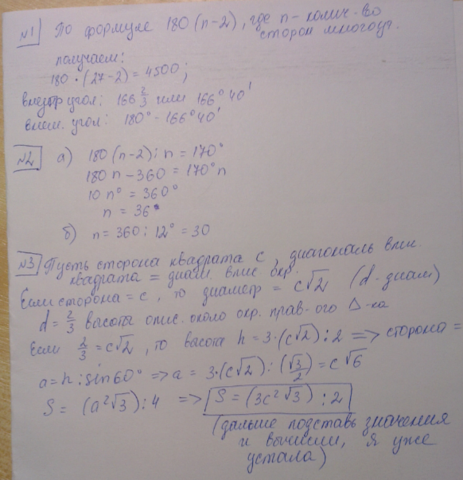 №1 По формуле 180 (n-2), где n - колич-во
сторон многоуг.
получаем:
180 · (27-2) = 4500;
внутр угол: 166 2/3 или 166°40'
внеш. угол: 180° - 166°40'
№2 а) 180 (n-2) : n = 170°
180 n - 360 = 170° n
10 n° = 360°
n = 36
б) n = 360 : 12° = 30
№3 Пусть сторона квадрата c, диагональ впис.
квадрата = диам. впис окр.
Если сторона = c, то диаметр = c√2 (d - диам)
d = 2/3 высоты опис. около окр. прав-ого Δ-ка
Если 2/3 = c√2, то высота h = 3·(c√2) : 2 => сторона =
a = h : sin60° => a = 3·(c√2) : (√3/2) = c√6
S = (a²√3) : 4 => S = (3c²√3) : 2
(дальше подставь значения
и вычисли, я уже
устала)